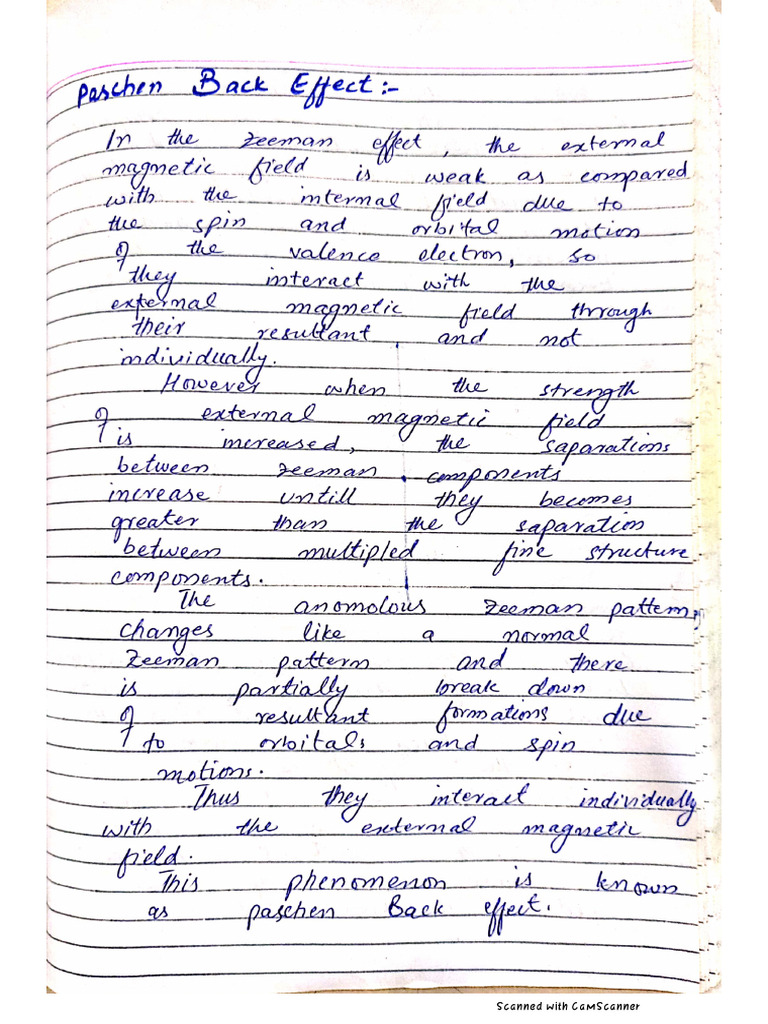 Paschen Back Effect:-
In the zeeman effect, the external
magnetic field is weak as compared
with the internal field due to
the spin and orbital motion
of the valence electron, so
they interact with the
external magnetic field through
their resultant, and not
individually.
However when the strength
of external magnetic field
is increased, the saparations
between zeeman components
increase untill they becomes
greater than the saparation
between multipled fine structure
components.
The anomolous zeeman pattern,
changes like a normal
Zeeman pattern and there
is partially break down
of resultant formations due
to orbitals and spin
motions.
Thus they interact individually
with the external magnetic
field.
This phenomenon is known
as paschen Back effect.
Scanned with CamScanner